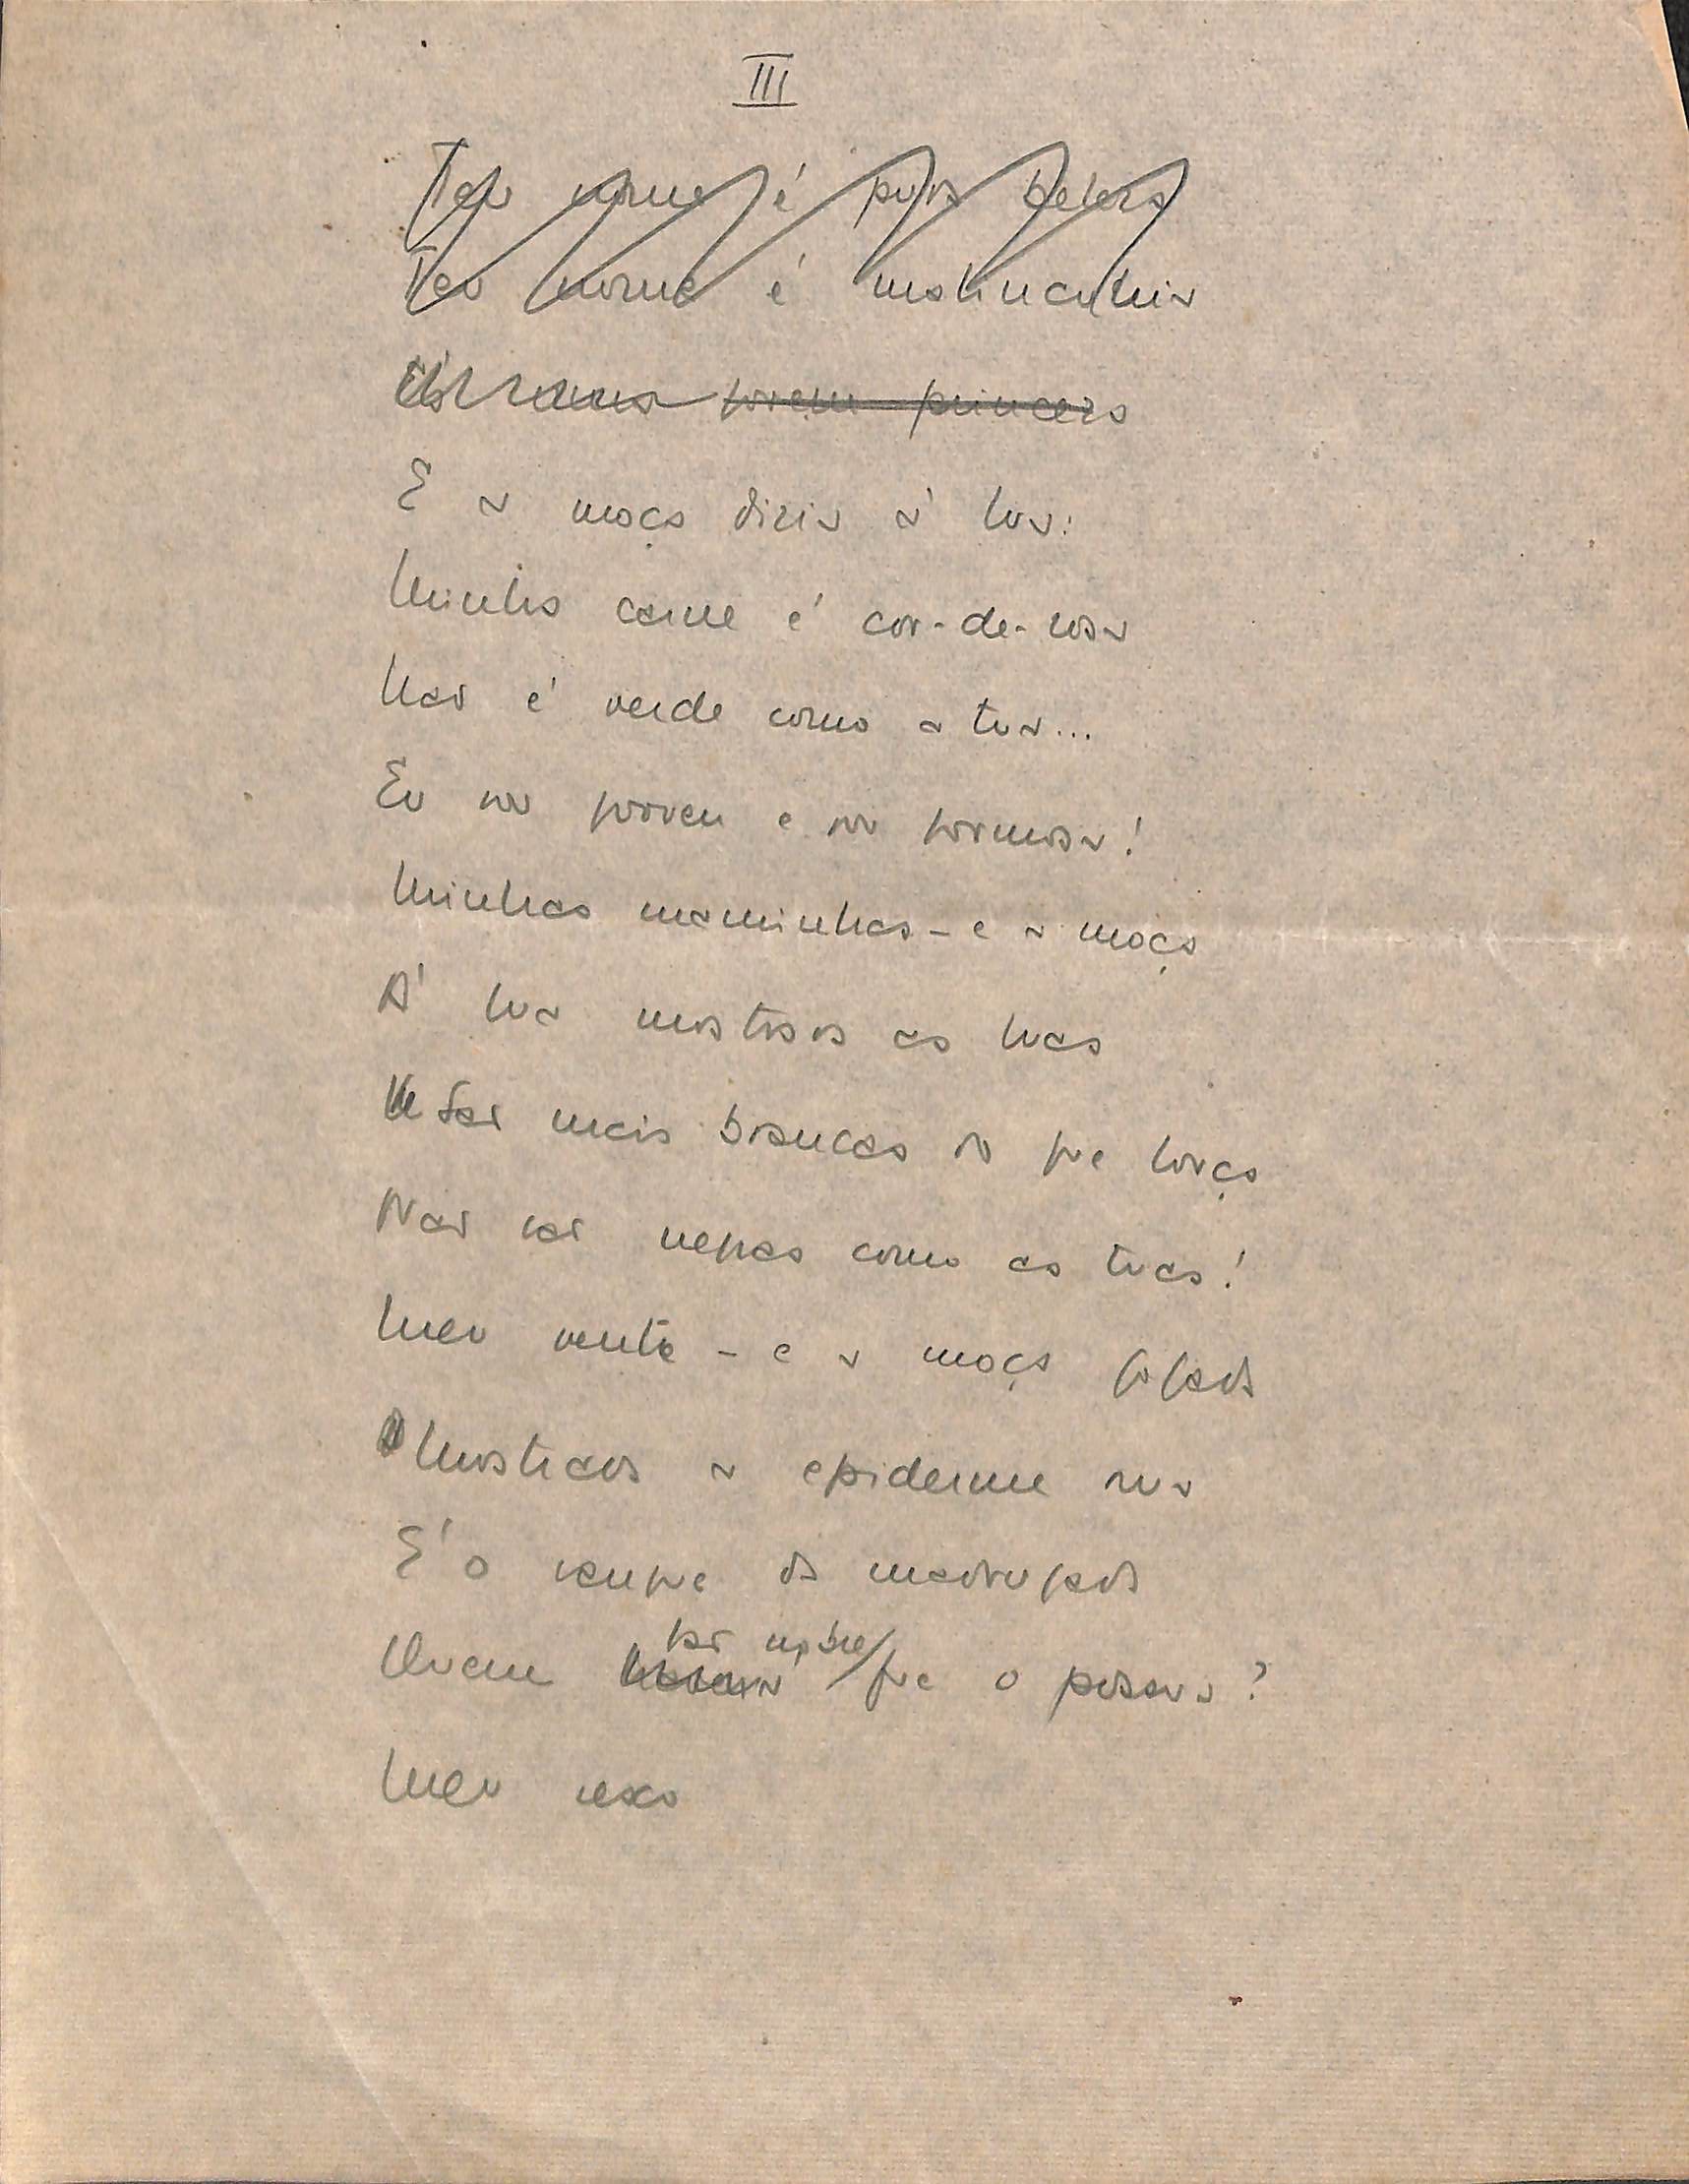 III
Teu nome é pura beleza
Teu nome é
jovem princesa
E a moça dizia à lua:
Minha carne é cor-de-rosa
Não é verde como a tua...
Eu sou jovem e sou formosa!
Minhas maminhas - e a moça
À lua mostrava as luas
São mais brancas do que louça
Não são negras como as tuas!
Meu ventre - e a moça
Mostrava a epiderme nua
É o sangue da madrugada
tão nobre
Quem que o possua?
Meu sexo